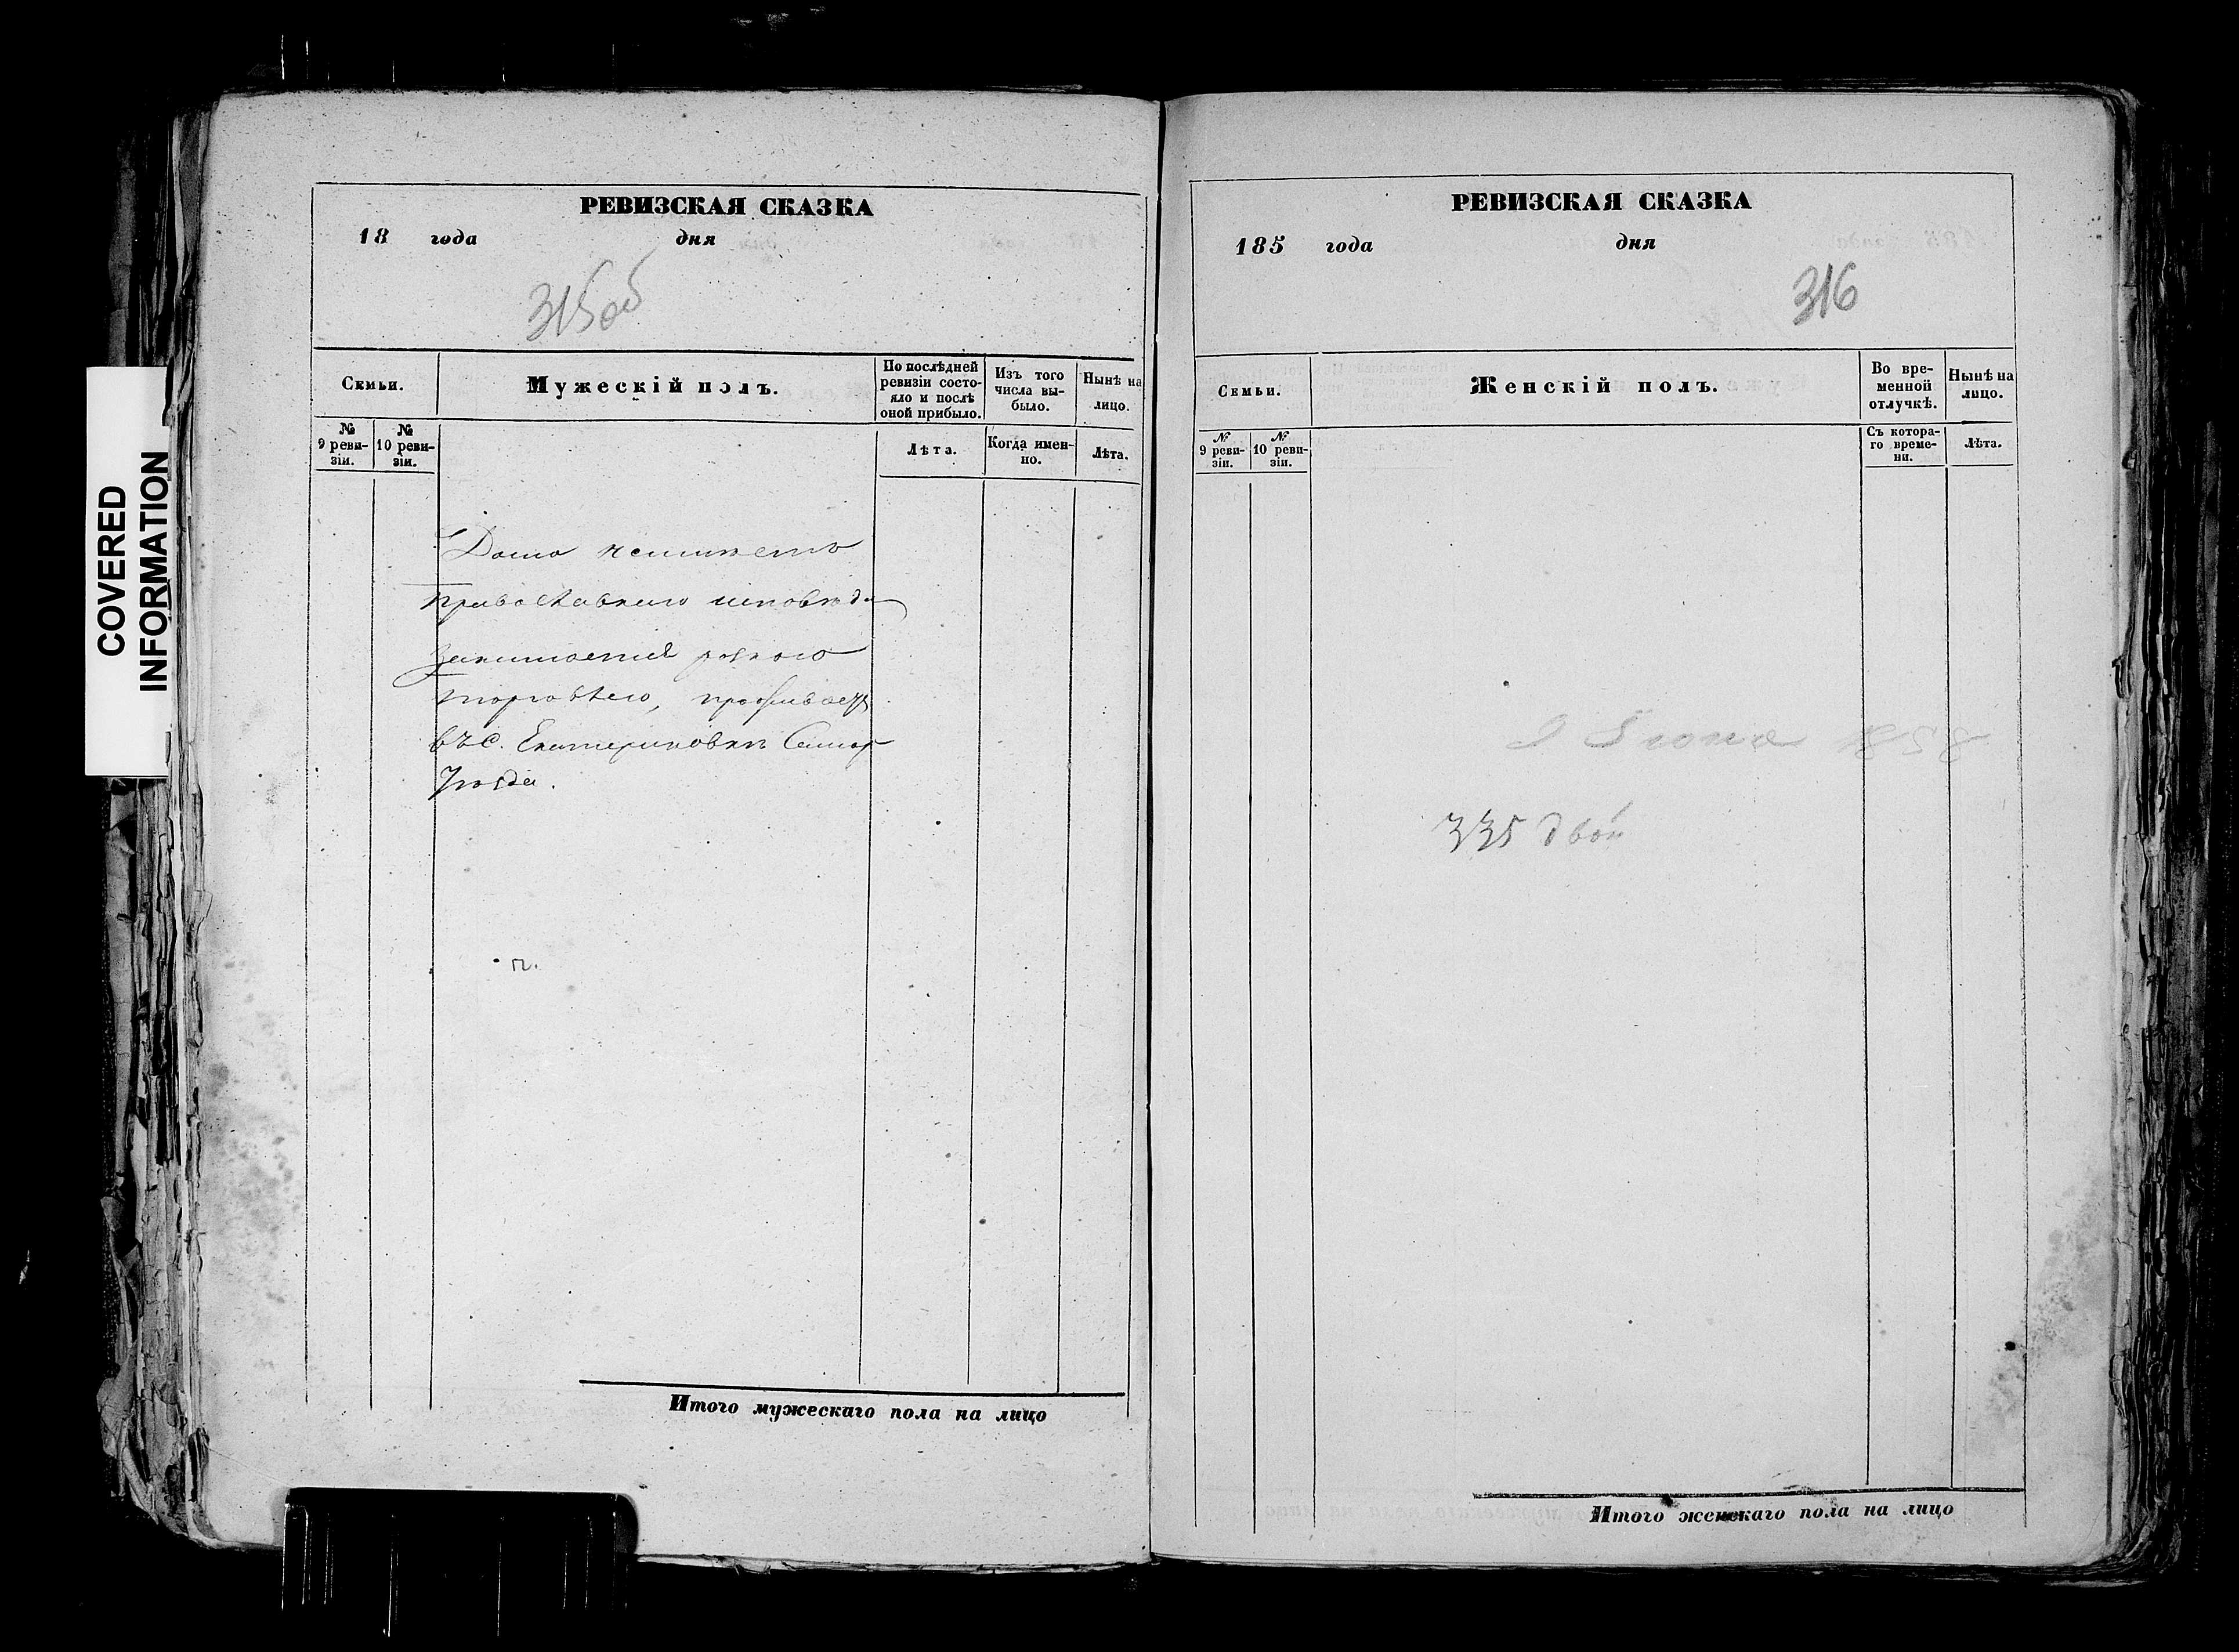 COVERED
INFORMATION
РЕВИЗСКАЯ СКАЗКА
18 года дня
315об
Семьи.
Мужескій полъ.
По послѣдней
ревизіи состо-
яло и послѣ
оной прибыло.
Изъ того
числа вы-
было.
Нынѣ на
лицо.
№
9 реви-
зіи.
№
10 реви-
зіи.
Лѣта.
Когда имен-
но.
Лѣта.
Дома неимѣетъ
православнаго исповѣда
занимается
торговлею, проживает
въ с. Екатериновкѣ Самар
Уѣзда.
Итого мужескаго пола на лицо
РЕВИЗСКАЯ СКАЗКА
185 года дня
316
Семьи.
Женскій полъ.
Во вре-
менной
отлучкѣ.
Нынѣ на
лицо.
№
9 реви-
зіи.
№
10 реви-
зіи.
Съ котора-
го време-
ни.
Лѣта.
1858
335
Итого женскаго пола на лицо